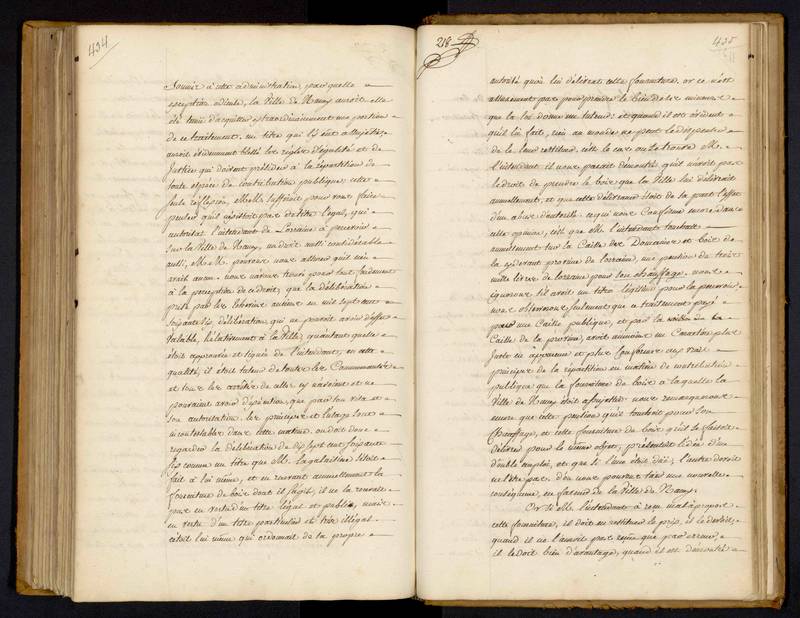 434
fournir à cette administration, par quelle
exception odieuse, la Ville de Nancy auroit elle
été tenue d'acquitter extraordinairement une portion
de ce traitement, un titre qui l'y eut assujettie
auroit évidemment blessé les règles d'égalité et de
Justice qui doivent présider à la répartition de
toute espece de contribution publique; cette
seule reflexion, MM. suffiroit pour vous faire
penser qu'il n'existoit pas de titre légal, qui
autorisat l'intendant de Lorraine à percevoir
sur la Ville de Nancy, un droit aussi considérable
aussi, M.M. pouvons nous assurer qu'il n'en
avoit aucun. nous n'avons trouvé pour tout fondement
à la perception de ce droit, que la délibération
prise par les Officiers anciens en mil sept cent
soixante six, délibération, qui ne pouvoit avoir d'effet
valable, relativement à la Ville, qu'autant qu'elle
étoit approuvée et signée de l'intendant, en cette
qualité, il étoit tuteur de toutes les Communautés
et tous les arrêtés de celles cy navoient et ne
pouvoient avoir d'exécution, que par son visa et
son autorisation. les principes et l'usage sont
incontestables dans cette matiere, on doit donc
regarder la délibération de dix sept cent soixante
six comme un titre que M. lagalaisiere s'étoit
fait à lui même, et en recevant annuellement la
fourniture de bois dont il s'agit, il ne la recevoit
pas en vertu d'un titre légal et public, mais
en vertu d'un titre particulier et très illégal.
c'étoit lui même qui ordonnoit de sa propre
218
435
autorité qu'on lui délivrat cette fourniture, or ce n'est
assurément pas pour prendre le bien de ses mineurs
que la loi donne un tuteur: et quand il est évident
qu'il l'a fait, rien au monde ne peut le dispenser
de le leur restituer, c'est le cas ou se trouve M.
l'intendant il nous paroit démontré qu'il n'avoit pas
le droit de prendre le bois que la Ville lui délivroit
annuellement, et que cette délivrance étoit de sa part l'effet
d'un abus d'autorité. ce qui nous Confirme encore dans
cette opinion, c'est que M. l'intendant touchoit
annuellement sur la Caisse des Domaines et bois de
la cydevant province de lorraine, une portion de trois
mille livres de lorraine pour son chauffage, nous
ignorons s'il avoit un titre légitime pour la percevoir
nous observerons seulement que ce traitement payé
par une Caisse publique, et par la
Caisse de la province, avoit au moins un Caractère plus
juste en apparence et plus Conforme aux vrais
principes de la répartition en matière de contribution
publique que la fourniture de bois à laquelle la
Ville de Nancy étoit assujettie. nous remarquerons
encore que cette portion qu'il touchoit pour son
Chauffage, et cette fourniture de bois qu'il se faisoit
délivrer pour le même objet, présentent l'idée d'un
double emploi, et que si l'une étoit düe, l'autre devoit
ne l'être pas. d'où nous pouvons tirer une nouvelle
conséquence, en faveur de la Ville de Nancy.
Or si M. l'intendant a reçu mal à propos
cette fourniture, il doit en restituer le prix, il le devroit,
quand il ne l'auroit pas reçüe que par erreur,
il le doit bien d'avantage, quand il est démontré